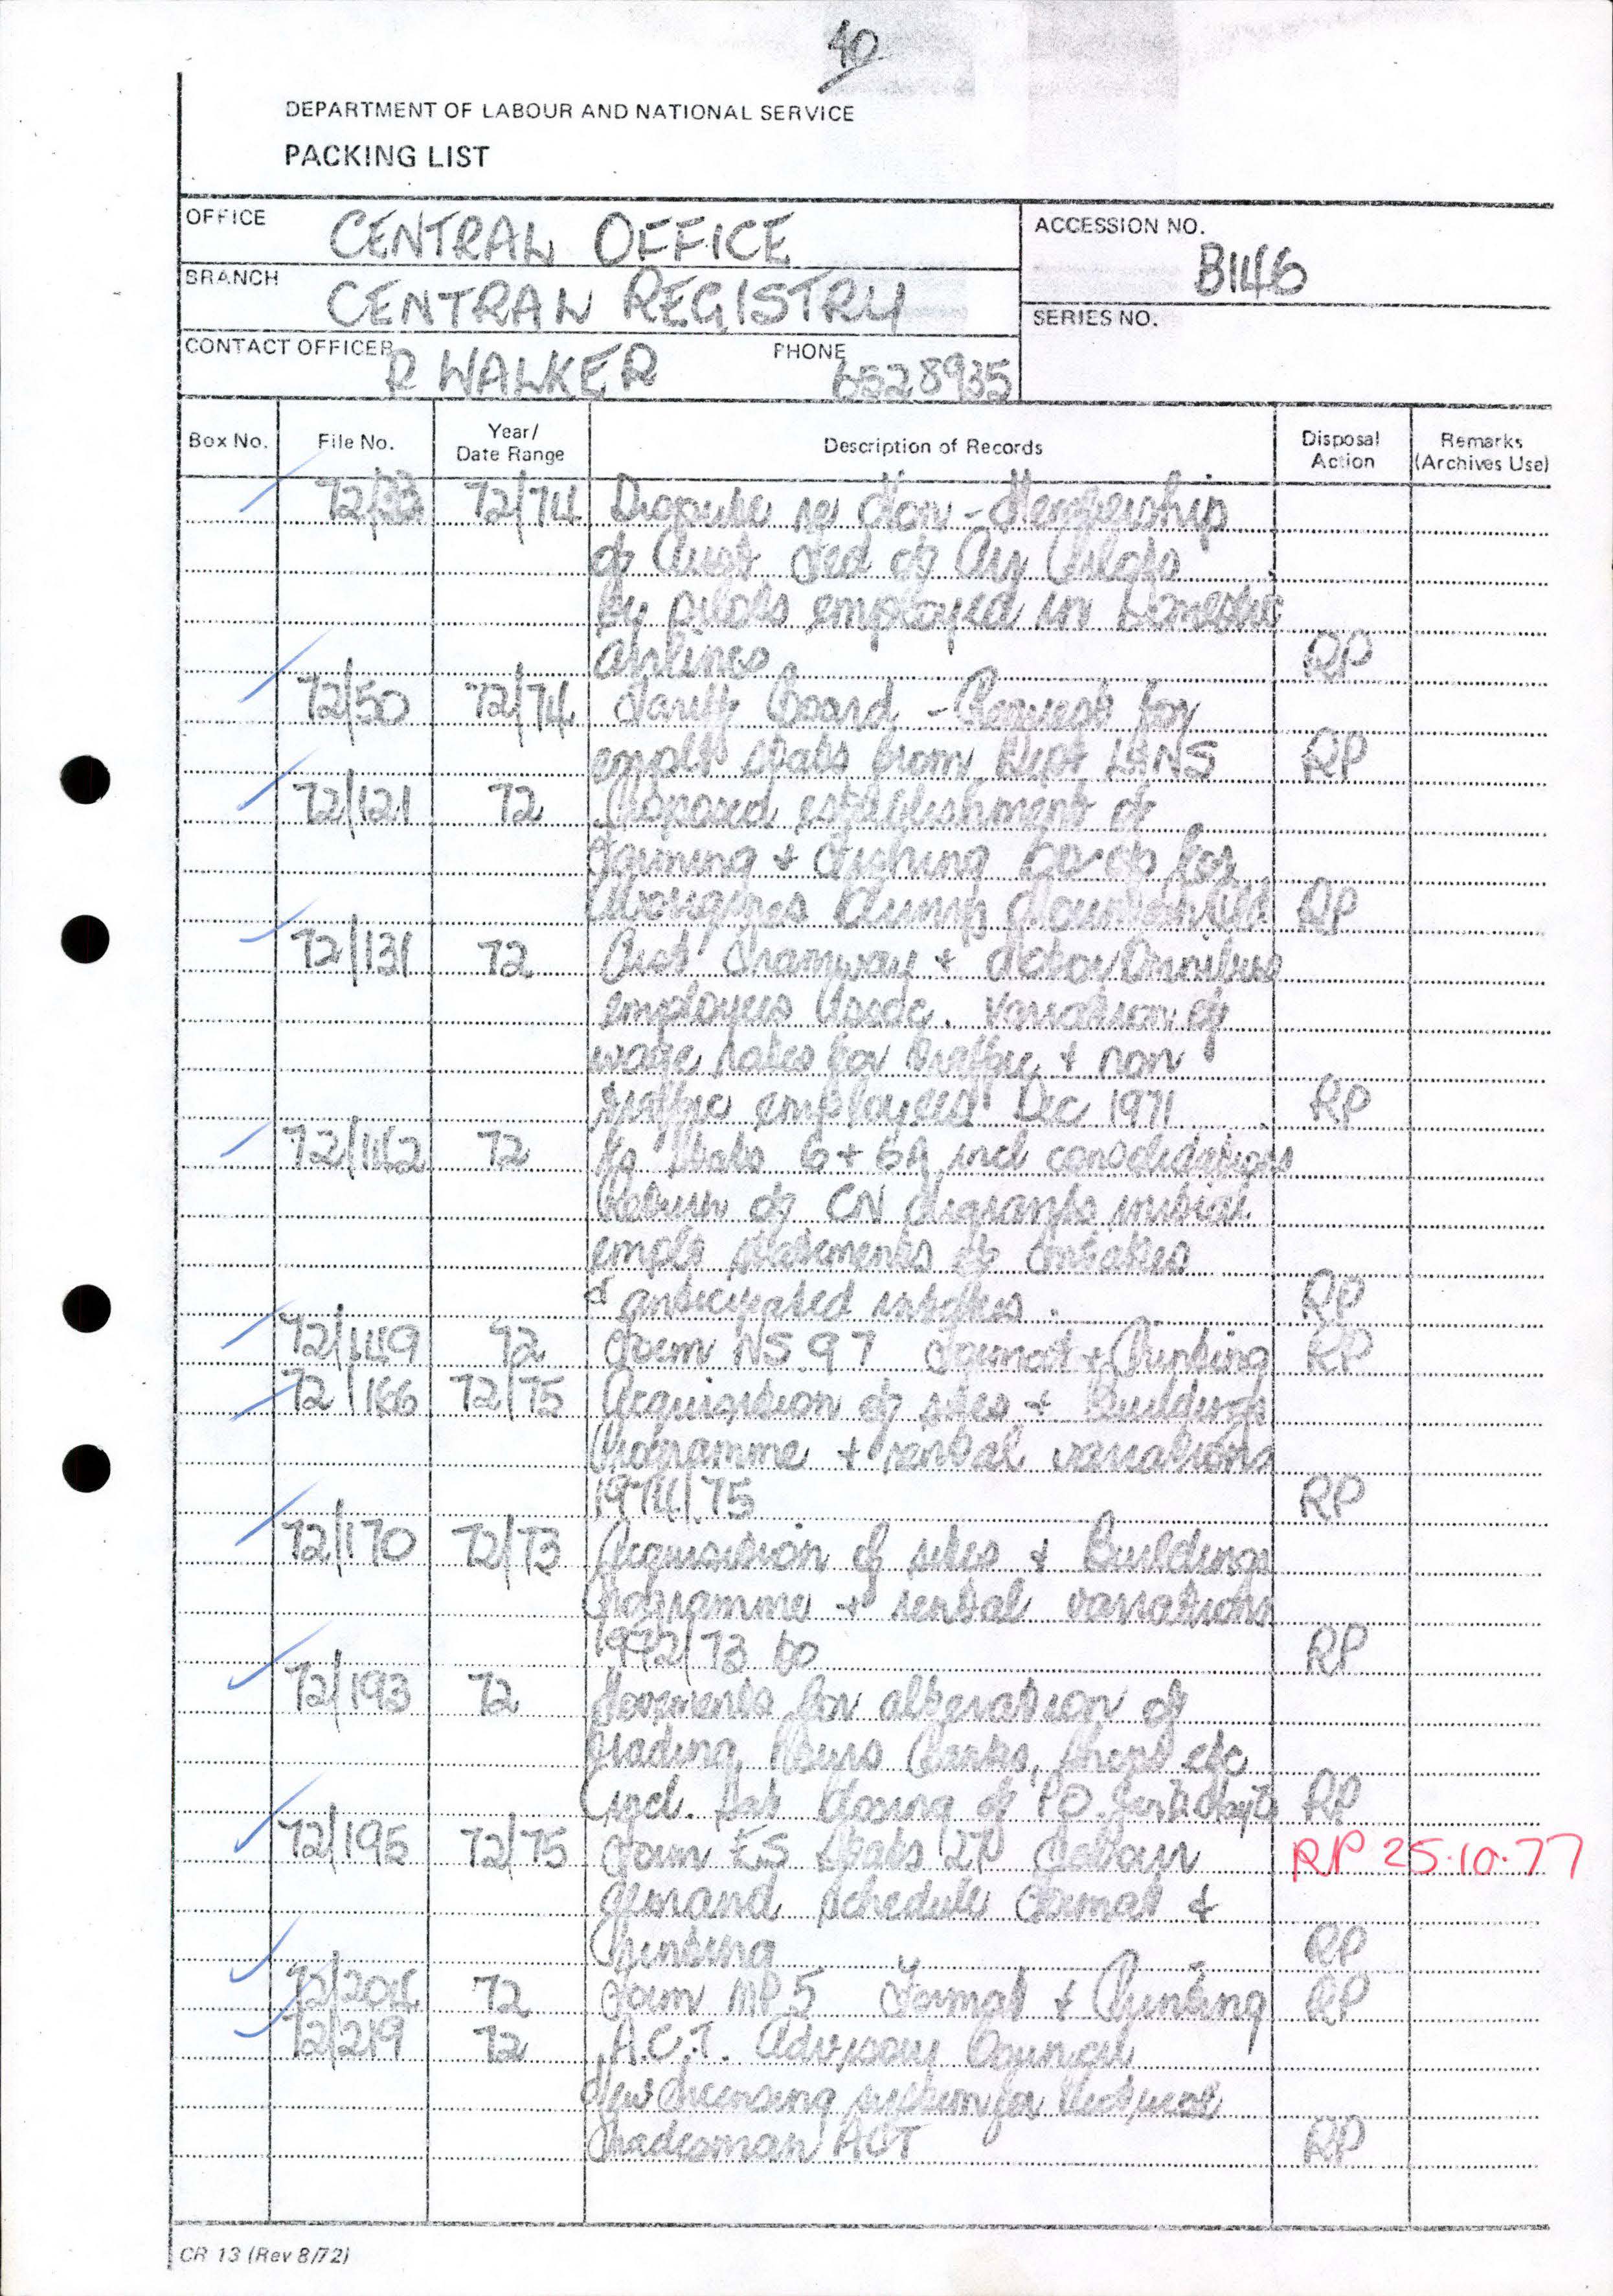 40
DEPARTMENT OF LABOUR AND NATIONAL SERVICE
PACKING LIST
OFFICE CENTRAL OFFICE
ACCESSION NO. B146
BRANCH CENTRAL REGISTRY
SERIES NO.
CONTACT OFFICER R WALKER PHONE 6528935
Box No. File No. Year/ Date Range Description of Records Disposal Action Remarks (Archives Use)
72/33 72/74 Dispute re Non-Membership
of Aust Fed of Air Pilots
by pilots employed in Domestic
airlines RP
72/50 72/74 Tariff Board - Request for
emplt stats from Dept L&NS RP
72/121 72 Proposed establishment of
Farming + Fishing co-op for
Aborigines RP
72/131 72 Aust Tramway + Motor Omnibus
employees Assoc. Variation of
wage rates for traffic + non
traffic employees Dec 1971 RP
72/142 72 Stats 6 + 6A incl consolidations
Return of CN Migrants initial
empls statements of intakes
+ anticipated intakes. RP
72/149 72 Form NS 97 Format + Printing RP
72/166 72/75 Acquisition of sites + Buildings
Programme + rental variations
1974/75 RP
72/170 72/73 Acquisition of sites + Buildings
Programme + rental variations
1972/73 to RP
72/193 72 for alteration of
Trading Hours Banks, Shops etc
incl. Sat Closing of PO RP
72/195 72/75 Form ES Stats 2P Labour RP 25.10.77
demand schedule Format +
Printing RP
72/204 72 Form MP 5 Format + Printing RP
72/219 72 A.C.T. Advisory Council
New Licensing system for Electrical
Tradesman ACT RP
CR 13 (Rev 8/72)